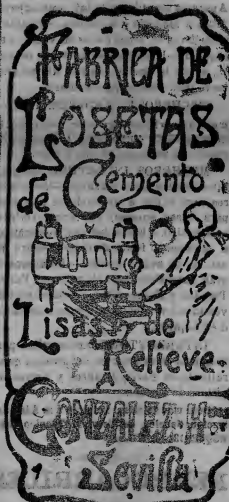 FABRICA DE
LOSETAS
de Cemento
Lisas y de
Relieve
GONZALEZ H
Sevilla